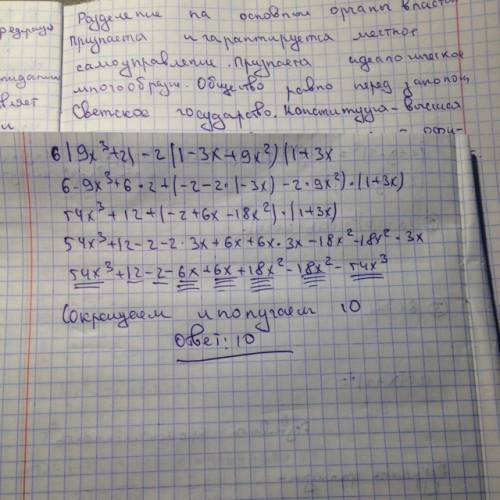 Разделение на основном органы власти
Признается и гарантируется местное
самоуправлении. Признается идеологическое
многообраз. Общество равно перед законом,
вляет
Светское государство. Конституция - высшая
6(9x³+2)-2(1-3x+9x²)(1+3x
6·9x³+6·2+(-2-2·(-3x)-2·9x²)·(1+3x)
54x³+12+(-2+6x-18x²)·(1+3x)
54x³+12-2-2·3x+6x+6x·3x-18x²-18x²·3x
54x³+12-2-6x+6x+18x²-18x²-54x³
Сокращаем и получаем 10
Ответ: 10